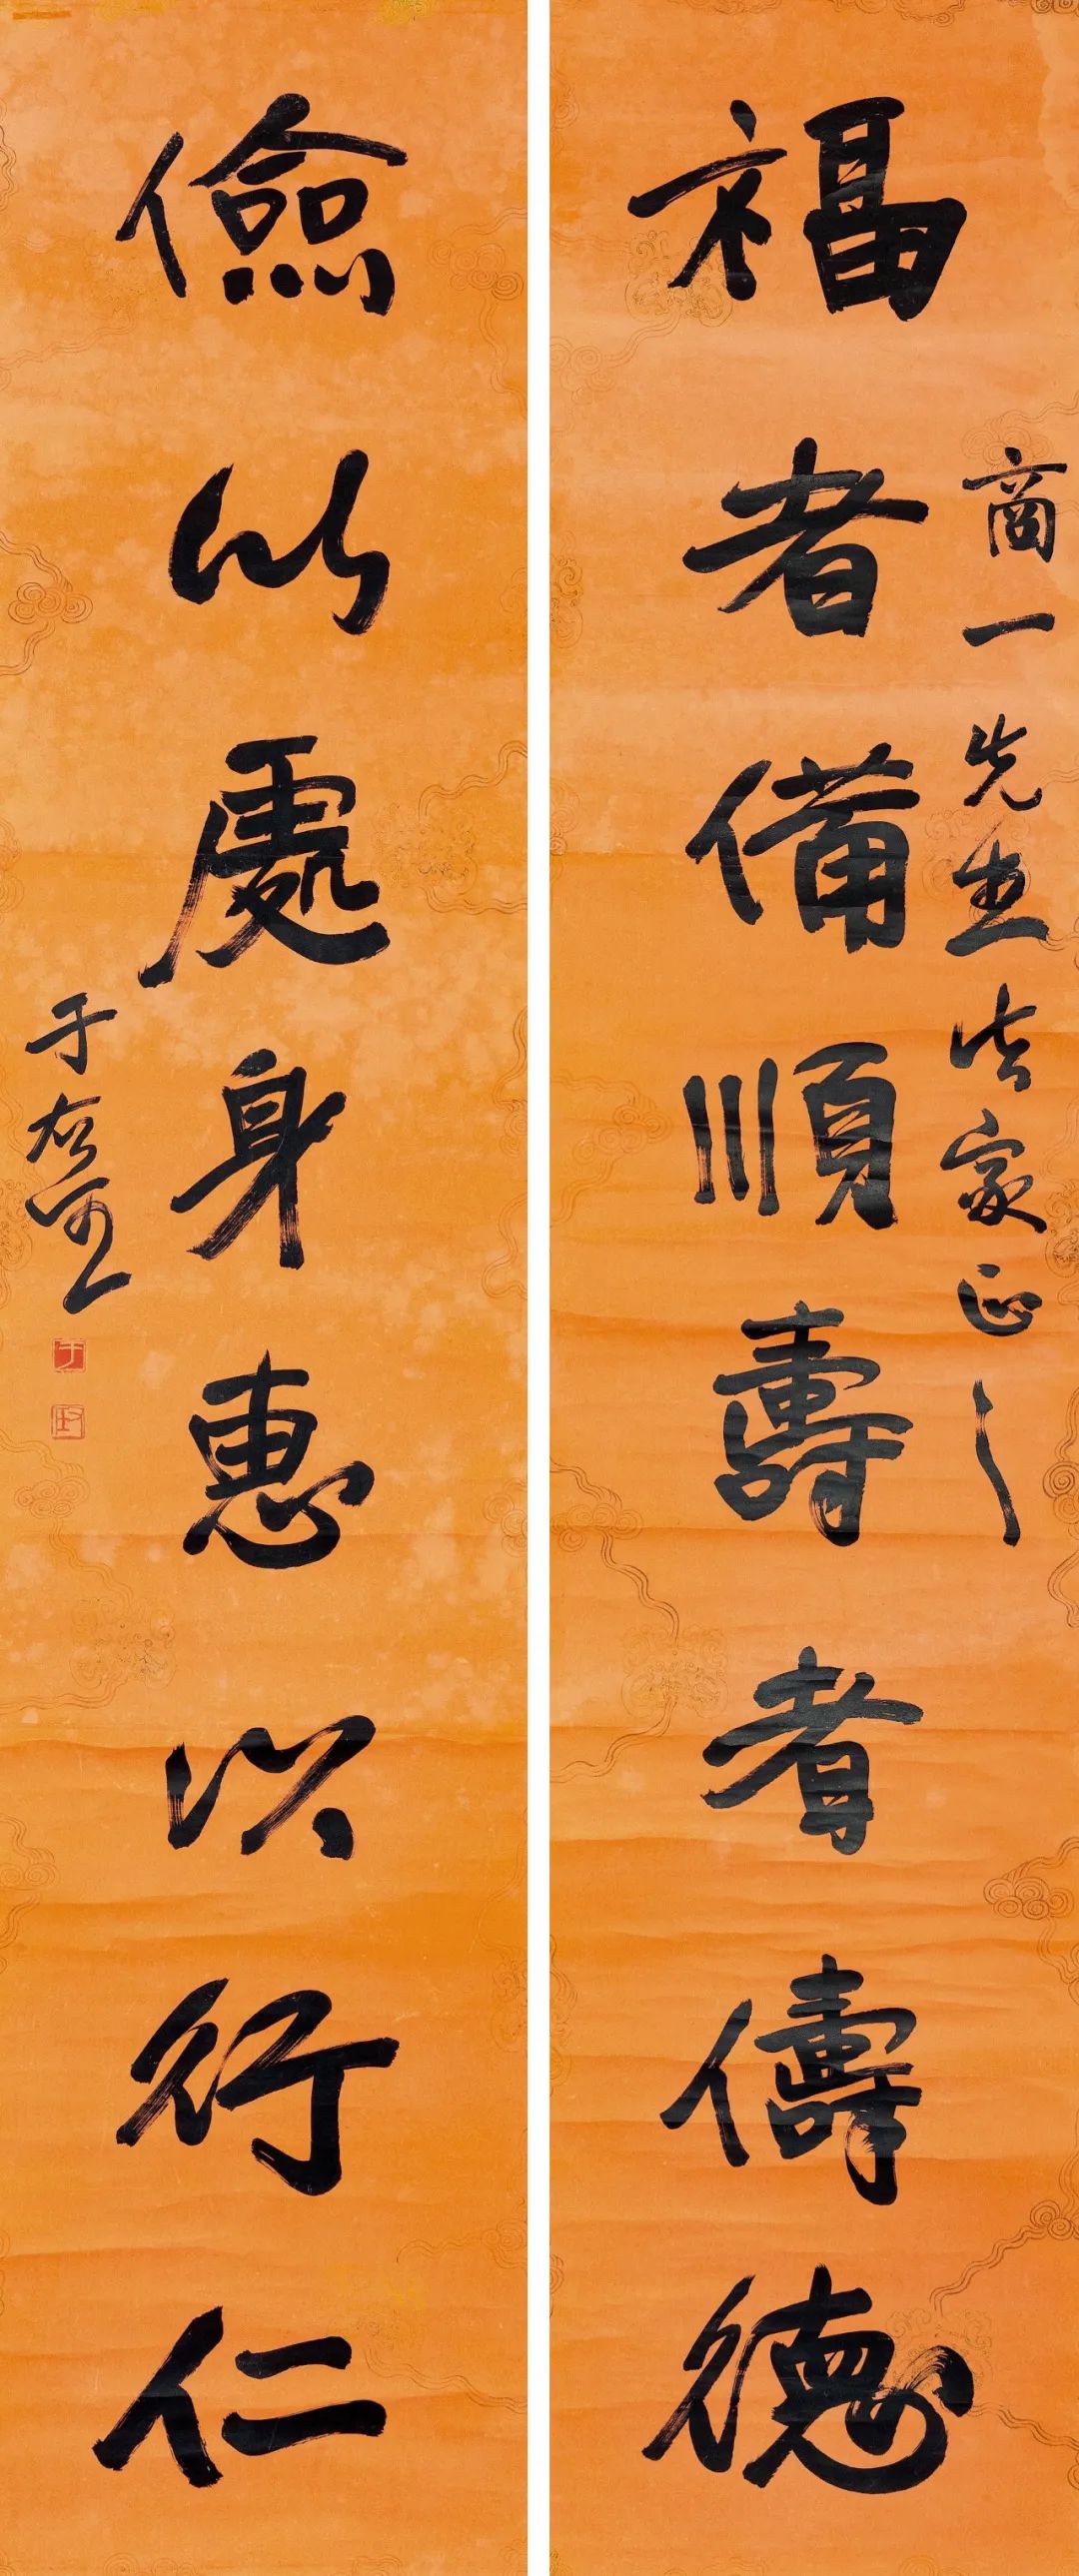 福者備順壽者儔德
商一先生法家正之
儉以處身惠以行仁
于右任
于